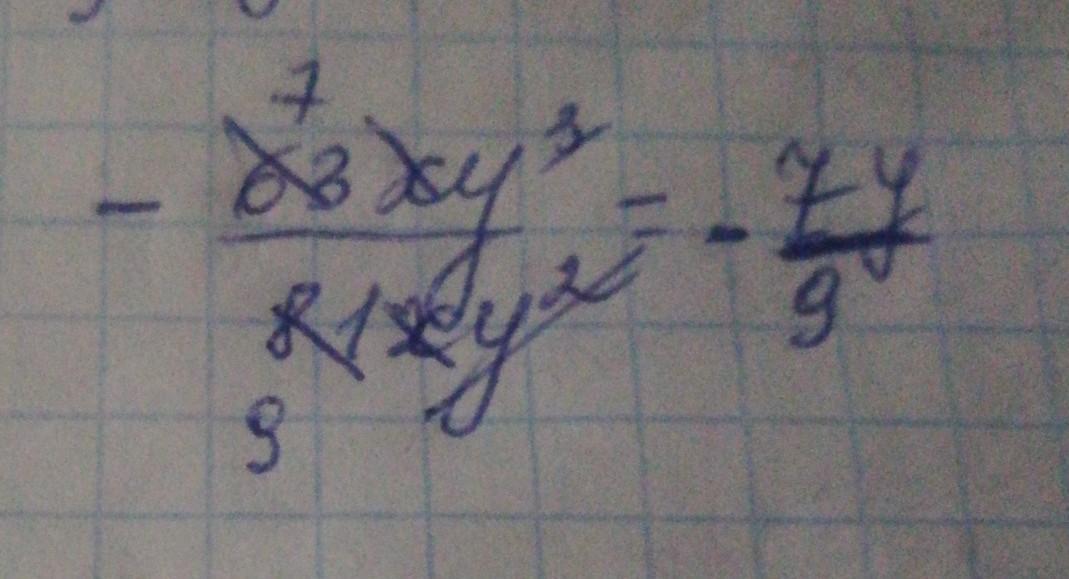 7
- 63xy³ / 81xy² = - 7y / 9
9